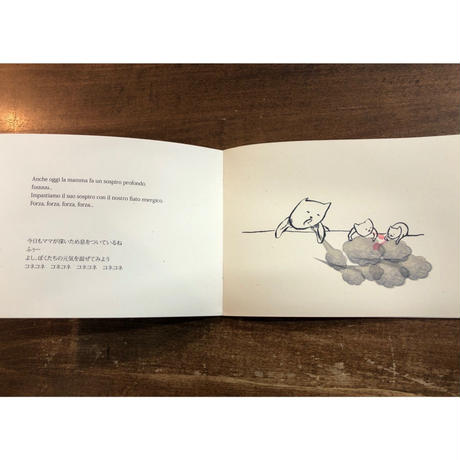 Anche oggi la mamma fa un sospiro profondo.
fuuuuu..
Impastiamo il suo sospiro con il nostro fiato energico.
Forza, forza, forza, forza..
今日もママが深いため息をついているね
ふぅー
よし、ぼくたちの元気を混ぜてみよう
コネコネ　コネコネ　コネコネ　コネコネ